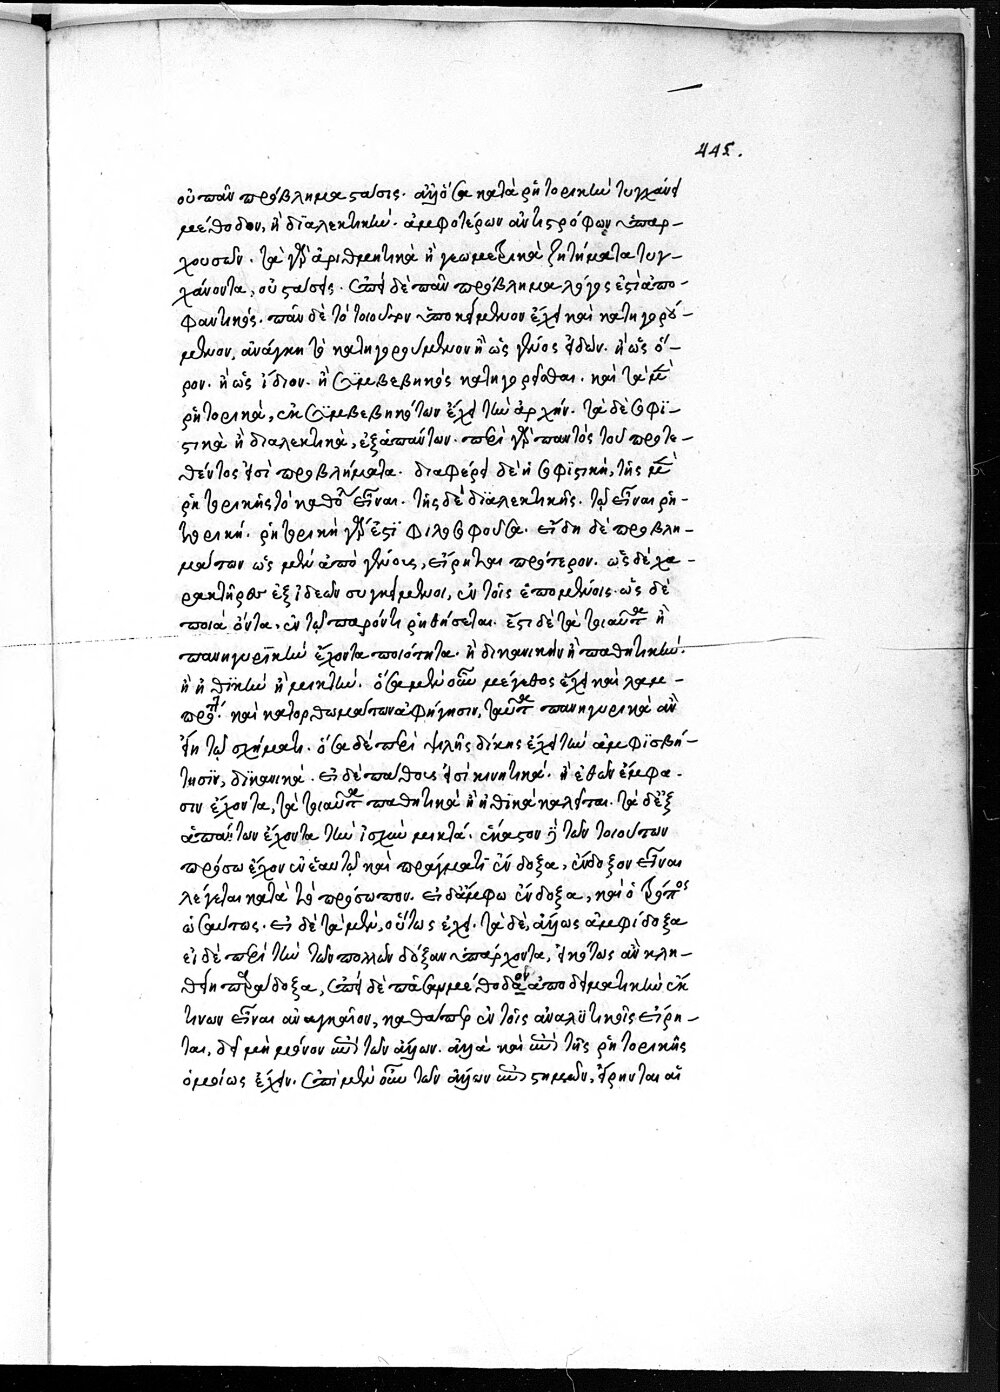 445.
οὐ πᾶν πρόβλημα στάσις. ἀλλ' ὅσα κατὰ ῥητορικὴν τυγχάνει
μέθοδον, ἢ διαλεκτικήν. ἀμφοτέρων ἀντιστρόφων ὑπαρ-
χουσῶν. τὰ γὰρ ἀριθμητικὰ ἢ γεωμετρικὰ ζητήματα τυγ-
χάνοντα, οὐ στάσεις. ἐπεὶ δὲ πᾶν πρόβλημα λόγος ἐστὶ ἀπο-
φαντικός. πᾶν δὲ τὸ τοιοῦτον ὑποκείμενον ἔχει καὶ κατηγορού-
μενον, ἀνάγκη τὸ κατηγορούμενον ἢ ὡς γένος εἰδῶν. ἢ ὡς ὅ-
ρον. ἢ ὡς ἴδιον. ἢ συμβεβηκός κατηγορεῖσθαι. καὶ τὰ μὲν
ῥητορικὰ, ἐκ συμβεβηκότων ἔχει τὴν ἀρχήν. τὰ δὲ σοφι-
στικὰ ἢ διαλεκτικὰ, ἐξ ἁπάντων. περὶ γὰρ παντὸς τοῦ προτε-
θέντος εἰσὶ προβλήματα. διαφέρει δὲ ἡ σοφιστική, τῆς μὲν
ῥητορικῆς τὸ καθόλου εἶναι. τῆς δὲ διαλεκτικῆς. τῷ εἶναι ῥη-
τορική. ῥητορικὴ γάρ ἐστι φιλοσοφοῦσα. εἴδη δὲ προβλη-
μάτων ὡς μὲν ἀπὸ γένους, εἴρηται πρότερον. ὡς δὲ χα-
ρακτῆρος ἐξ ἰδεῶν συγκείμενοι, ἐν τοῖς ἑπομένοις. ὡς δὲ
ποιὰ ὄντα. ἐν τῷ παρόντι ῥηθήσεται. ἔστι δὲ τὰ τοιαῦτα ἢ
πανηγυρικὴν ἔχοντα ποιότητα. ἢ δικανικὴν ἢ παθητικὴν.
ἢ ἠθικὴν ἢ μικτήν. ὅσα μὲν οὖν μέγεθος ἔχει καὶ λαμ-
πρότητα. καὶ κατορθωμάτων ἀφήγησιν, ταῦτα πανηγυρικὰ ἂν
εἴη τῷ σχήματι. ὅσα δὲ περὶ ψιλῆς δίκης ἔχει τὴν ἀμφισβή-
τησιν, δικανικά. εἰ δὲ πάθους εἰσὶ κινητικά. ἢ ἐθῶν ἔμφα-
σιν ἔχοντα, τὰ τοιαῦτα παθητικὰ ἢ ἠθικὰ καλεῖται. τὰ δ' ἐξ
ἁπάντων ἔχοντα τὴν ἰσχὺν μικτά. ἕκαστον δὲ τῶν τοιούτων
πρόσω ἔχον ἐν ἑαυτῷ καὶ πράγματι ἔνδοξα, ἔνδοξον εἶναι
λέγεται κατὰ τὸ πρόσωπον. εἰ δ' ἄμφω ἔνδοξα, καὶ ὁ τρόπος
ὡσαύτως. εἰ δὲ τὰ μὲν, οὕτως ἔχει. τὰ δὲ, ἄλλως ἀμφίδοξα
εἰ δὲ περὶ τὴν τῶν πολλῶν δόξαν ὑπάρχοντα, εἰκότως ἂν κλη-
θείη παράδοξα, ἐπεὶ δὲ πᾶσαν μέθοδον ἀποδειγματικὴν ἔκ
τινων εἶναι ἀναγκαῖον, καθάπερ ἐν τοῖς ἀναλυτικοῖς εἴρη-
ται, δεῖ μὴ μόνον ἐπὶ τῶν ἄλλων. ἀλλὰ καὶ ἐπὶ τῆς ῥητορικῆς
ὁμοίως ἔχειν. ἐπὶ μὲν οὖν τῶν ἄλλων ἐπιστημῶν, εἴρηνται αἱ